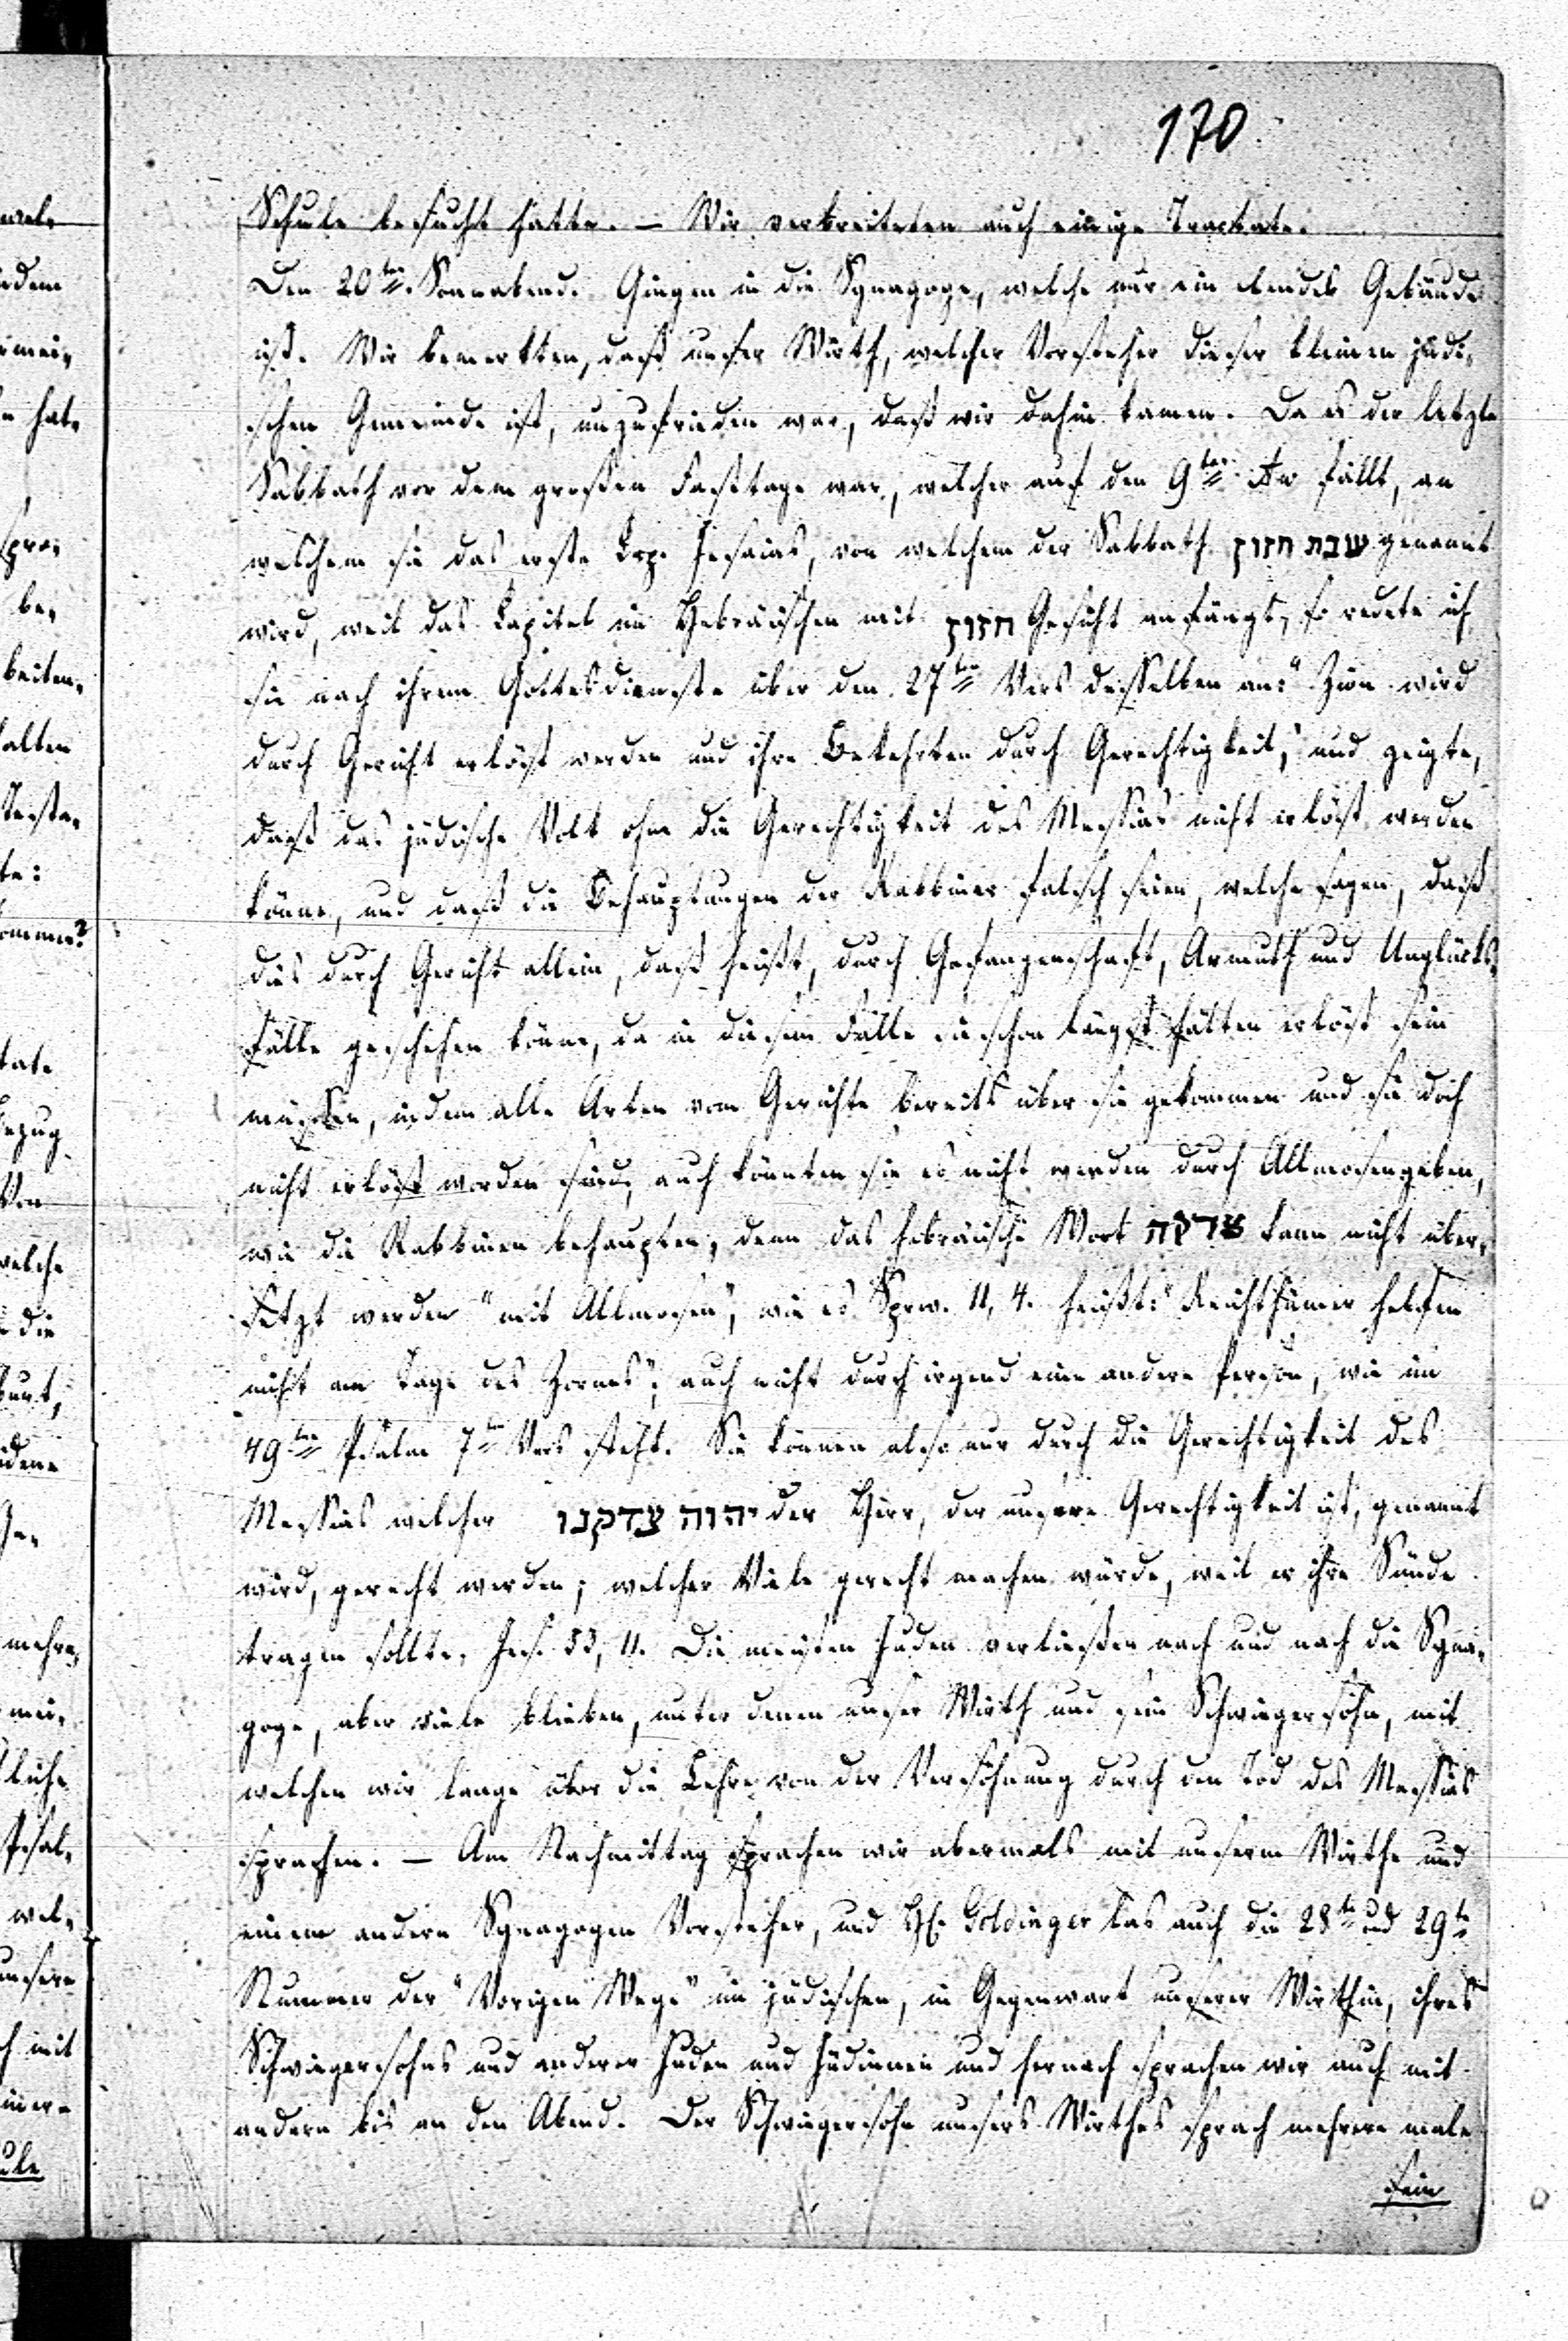 170
Schule besucht hatte. — Wir verbreiteten auch einige Tractate.
Den 20ten Sonnabend. Gingen in die Synagoge, welche nur ein elendes Gebäude
ist. Wir bemerkten, daß unser Wirth, welcher Vorsteher dieser kleinen jüdi-
schen Gemeinde ist, unzufrieden war, daß wir dahin kamen. Da es der letzte
Sabbath vor dem großen Fasttage war, welcher auf den 9ten Aw fällt, an
welchem sie das erste Cap. Jesaias, von welchem der Sabbath שבת חזון genannt
wird, weil das Capitel im Hebräischen mit חזון Gesicht anfängt, so redete ich
sie nach ihrem Gottesdienste über den 27ten Vers desselben an: "Zion wird
durch Gericht erlöst werden und ihre Bekehrten durch Gerechtigkeit," und zeigte,
daß das jüdische Volk ohne die Gerechtigkeit des Messias nicht erlöst werden
könne, und daß die Behauptungen der Rabbiner falsch seien, welche sagen, daß
dies durch Gericht allein, daß heißt, durch Gefangenschaft, Armuth und Unglücks-
fälle geschehen könne, da in diesem Falle sie schon längst hätten erlöst sein
müssen, indem alle Arten vom Gerichte bereits über sie gekommen und sie doch
nicht erlöst worden sind, auch könnten sie es nicht werden durch Allmosengeben,
wie die Rabbinen behaupten, denn das hebräische Wort צדקה kann nicht über-
setzt werden "mit Allmosen", wie es Sprw. 11, 4. heißt: "Reichthümer helfen
nicht am Tage des Zornes"; auch nicht durch irgend eine andere Person, wie im
49ten Psalm 7ten Vers steht. Sie können also nur durch die Gerechtigkeit des
Messias welcher יהוה צדקנו der Herr, der unsere Gerechtigkeit ist, genannt
wird, gerecht werden; welcher Viele gerecht machen würde, weil er ihre Sünde
tragen sollte, Jes. 53, 11. Die meisten Juden verließen nach und nach die Syna-
goge, aber viele blieben, unter denen unser Wirth und sein Schwiegersohn, mit
welchen wir lange über die Lehre von der Versöhnung durch den Tod des Messias
sprachen. — Am Nachmittag sprachen wir abermals mit unserm Wirthe und
einem andern Synagogen Vorsteher, und H. Goldinger las auch die 28te und 29te
Nummer der "Vorigen Wege" im jüdischen, in Gegenwart unserer Wirthin, ihres
Schwiegersohns und anderer Juden und Jüdinnen und hernach sprachen wir auch mit
andern bis an den Abend. Der Schwiegersohn unsers Wirthes sprach mehrere male
sein